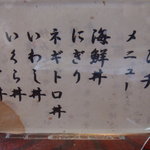 メニュー
海鮮丼
にぎり
ネギトロ丼
いわし丼
いくら丼